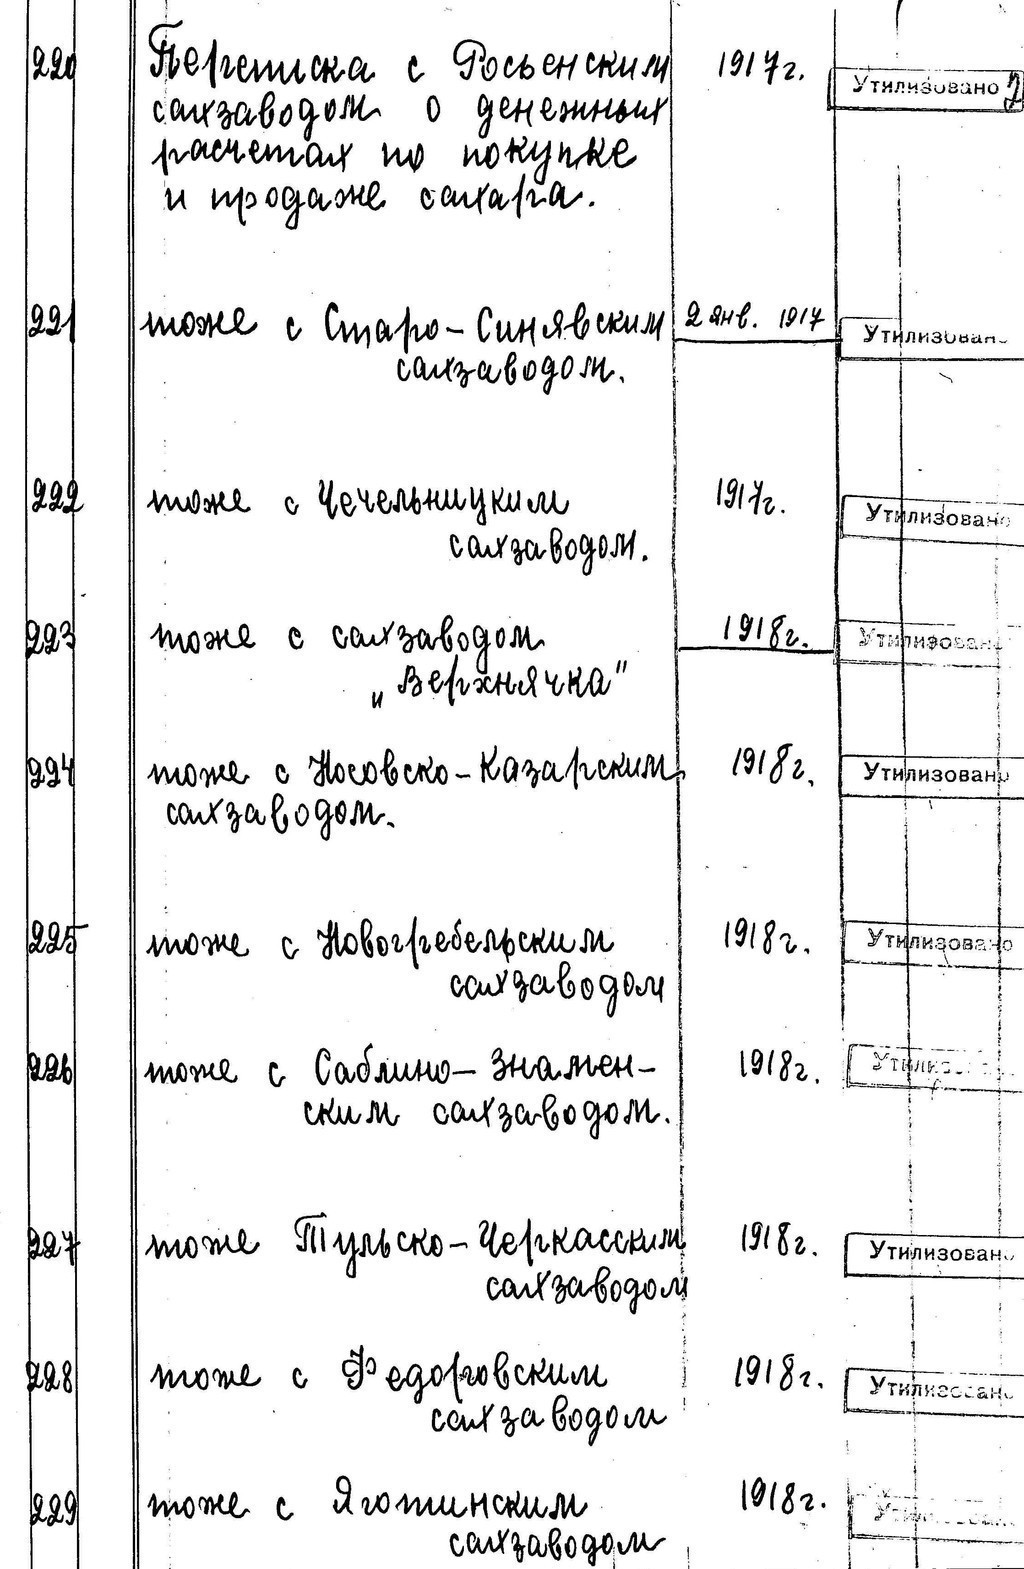 220 Переписка с Росьенским 1917г. Утилизовано 2
сахзаводом о денежных
расчетах по покупке
и продаже сахара.
221 тоже с Старо-Синявским 2 янв. 1917 Утилизовано
сахзаводом.
222 тоже с Чечельницким 1917г. Утилизовано
сахзаводом.
223 тоже с сахзаводом 1918г. Утилизовано
„Верхнячка"
224 тоже с Носовско-Казарским 1918г. Утилизовано
сахзаводом.
225 тоже с Новогребельским 1918г. Утилизовано
сахзаводом
226 тоже с Саблино-Знамен- 1918г.
ским сахзаводом.
227 тоже Тульско-Черкасским 1918г. Утилизовано
сахзаводом
228 тоже с Федоровским 1918г. Утилизовано
сахзаводом
229 тоже с Яготинским 1918г.
сахзаводом